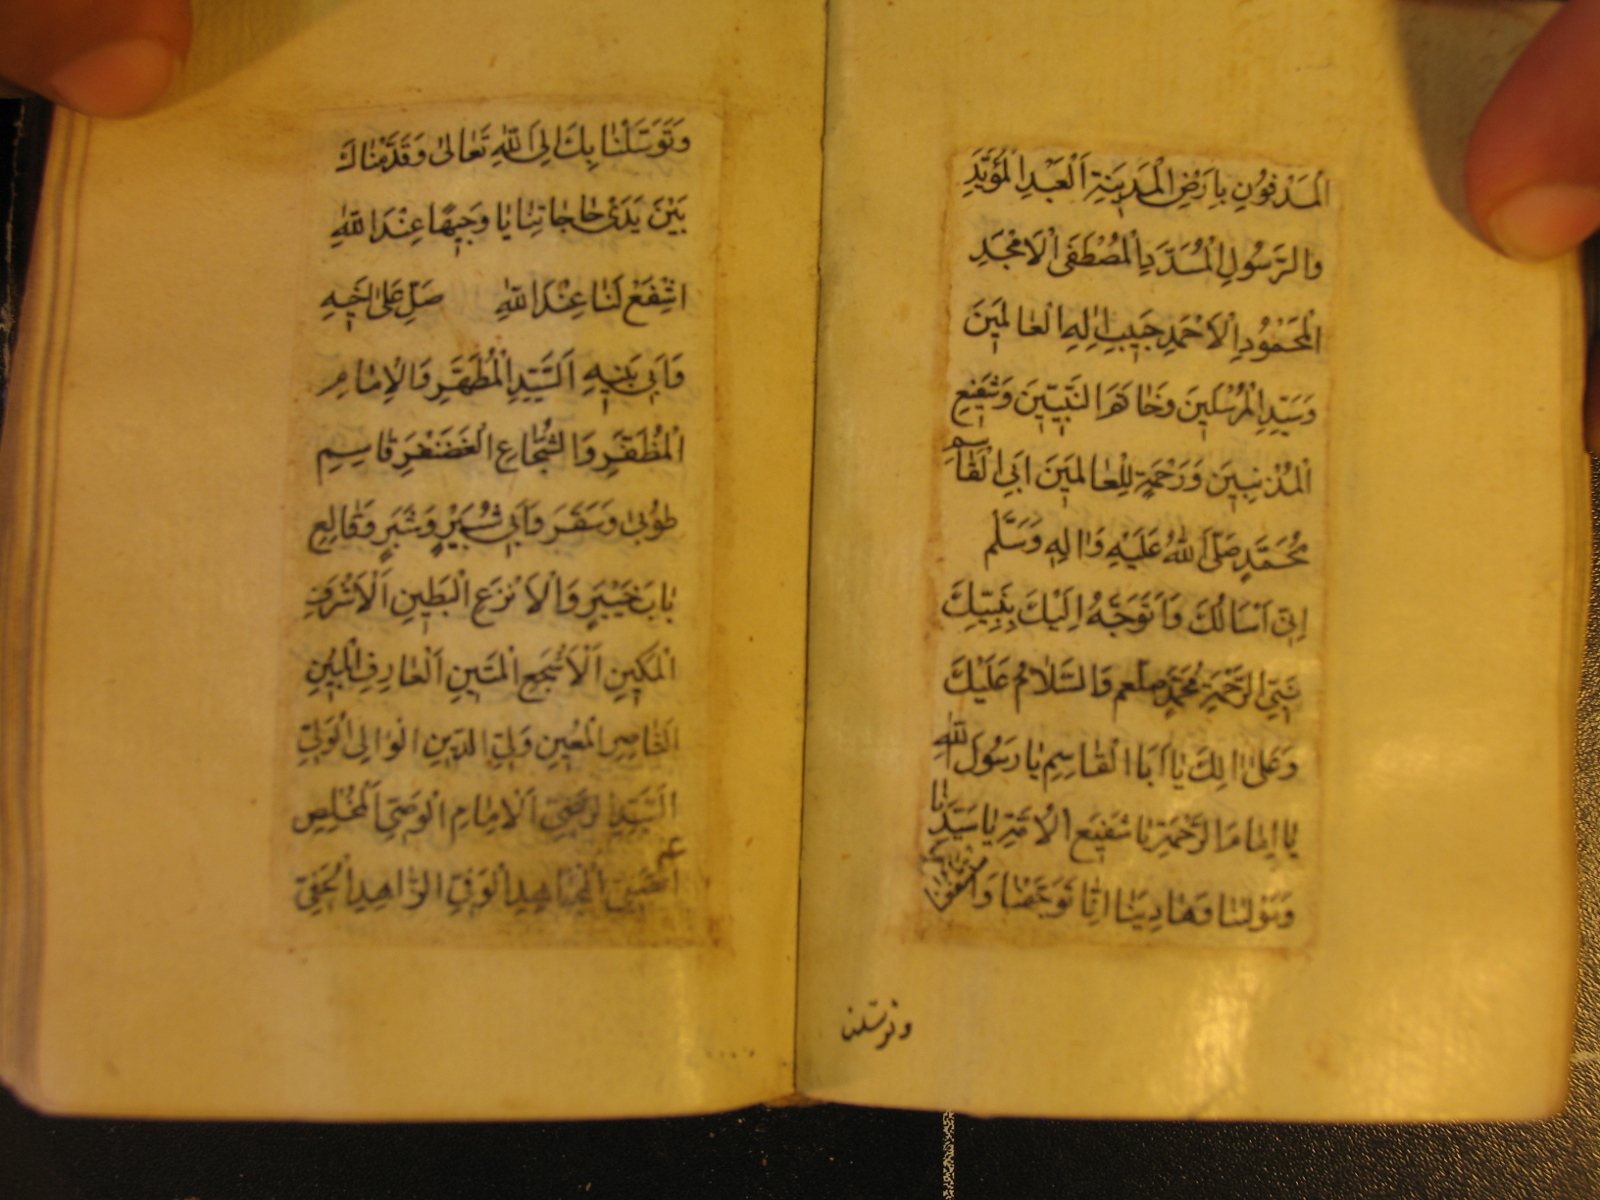 الْمَدْفُونِ بِاَرْضِ الْمَدِينَةِ اَلْعَبْدِ الْمُؤَيَّدِ
وَالرَّسُولِ الْمُسَدَّدِ الْمُصْطَفَى الْاَمْجَدِ
الْمَحْمُودِ الْاَحْمَدِ حَبِيبِ اِلهِ الْعَالَمِينَ
وَسَيِّدِ الْمُرْسَلِينَ وَخَاتَمِ النَّبِيِّينَ وَشَفِيعِ
الْمُذْنِبِينَ وَرَحْمَةٍ لِلْعَالَمِينَ اَبِي الْقَاسِمِ
مُحَمَّدٍ صَلَّى اللهُ عَلَيْهِ وَالِهِ وَسَلَّمَ
اِنِّي اَسْاَلُكَ وَاَتَوَجَّهُ اِلَيْكَ بِنَبِيِّكَ
نَبِيِّ الرَّحْمَةِ مُحَمَّدٍ صلعم وَالسَّلَامُ عَلَيْكَ
وَعَلَى الِكَ يَا اَبَا الْقَاسِمِ يَا رَسُولَ اللهِ
يَا اِمَامَ الرَّحْمَةِ يَا شَفِيعَ الْاُمَّةِ يَا سَيِّدَنَا
وَمَوْلَينَا وَهَادِينَا اِنَّا تَوَجَّهْنَا
وتوسّلنا
وَتَوَسَّلْنَا بِكَ اِلَى اللهِ تَعَالَى وَقَدَّمْنَاكَ
بَيْنَ يَدَىْ حَاجَاتِنَا يَا وَجِيهًا عِنْدَ اللهِ
اشْفَعْ لَنَا عِنْدَ اللهِ صَلِّ عَلَى اَخِيهِ
وَاَبِي بَنِيهِ اَلسَّيِّدِ الْمُطَهَّرِ وَالْاِمَامِ
الْمُظَفَّرِ وَالشُّجَاعِ الْغَضَنْفَرِ قَاسِمِ
طُوبَى وَسَقَرَ وَاَبِي شُبَيْرٍ وَشَبَرٍ وَقَالِعِ
بَابِ خَيْبَرٍ وَالْاَنْزَعِ الْبَطِينِ اَلْاَشْرَفِ
الْمَكِينِ اَلْاَشْجَعِ الْمَتِينِ اَلْعَارِفِ الْمُبِينِ
النَّاصِرِ الْمُعِينِ وَلِيِّ الدِّينِ الْوَالِي الْوَلِيِّ
السَّيِّدِ الرَّضِيِّ اَلْاِمَامِ الْوَصِيِّ اَلْمُخْلِصِ
الْمُجَاهِدِ الْوَفِيِّ الزَّاهِدِ الْحَفِيِّ